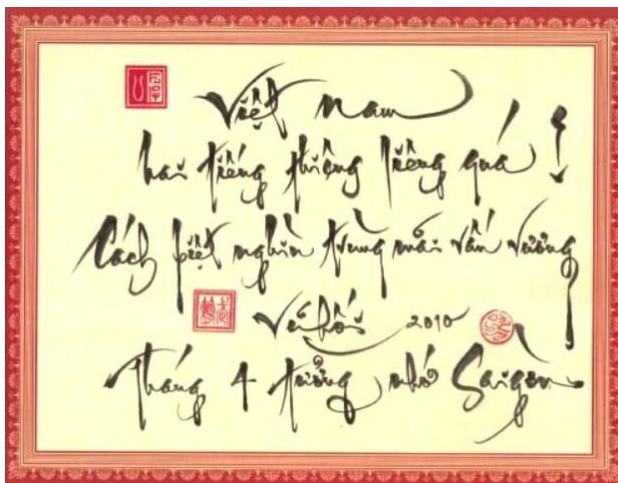 Việt nam
hai tiếng thiêng liêng quá !
Cách biệt nghìn trùng mãi vấn vương
Vũ hối 2010
Tháng 4 tưởng nhớ Saigòn